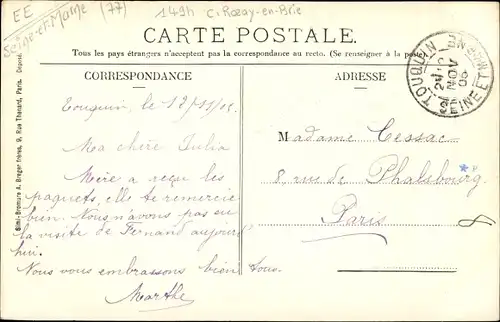 EE
Seine-et-Marne (77)
149h c. Rozay-en-Brie
CARTE POSTALE.
Tous les pays étrangers n'acceptent pas la correspondance au recto. (Se renseigner à la poste)
CORRESPONDANCE
ADRESSE
TOUQUIN
NOV
SEINE ET MARNE
Simi-Bromure A. Breger frères, 9, Rue Thénard, Paris. Déposé.
Touquin, le 12/11/
Ma chère Julia
Mère a reçu les
paquets, elle te remercie
bien. Nous n'avons pas eu
la visite de Fernand aujourd'
hui.
Nous vous embrassons bien tous.
Marthe
Madame Cessac
8, rue de Phalsbourg
Paris